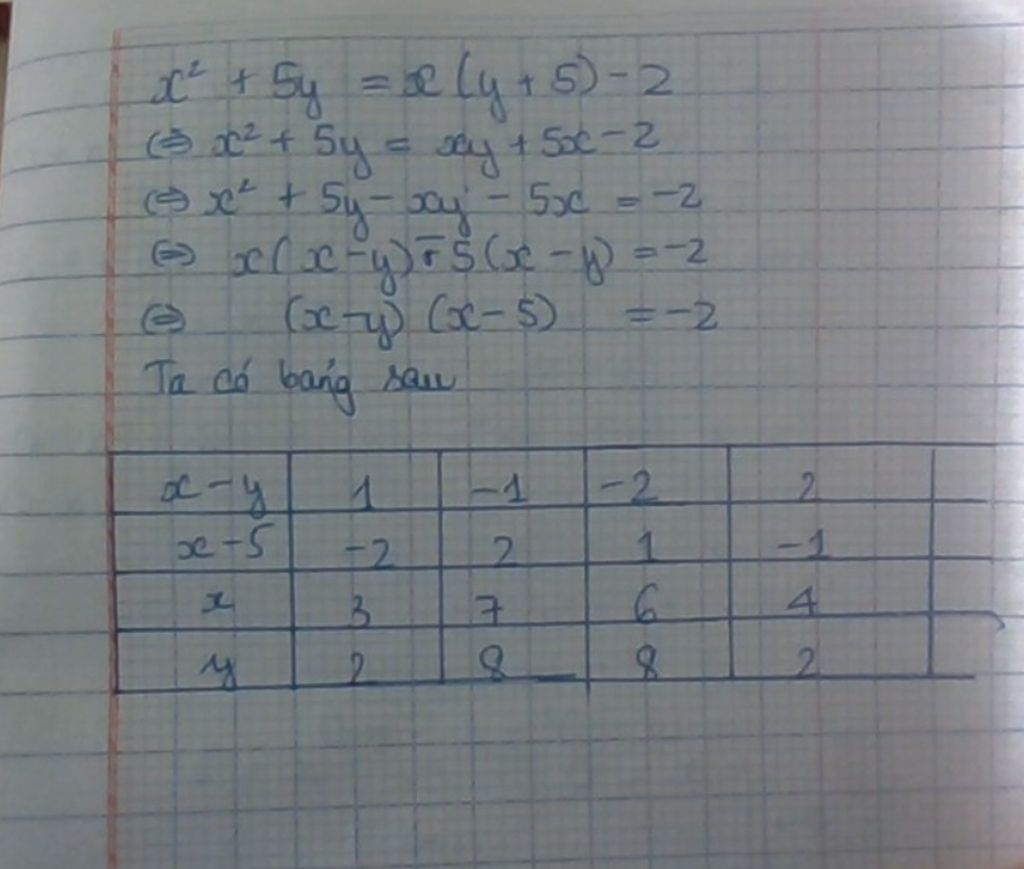 x² + 5y = x(y + 5) - 2
⇔ x² + 5y = xy + 5x - 2
⇔ x² + 5y - xy - 5x = -2
⇔ x(x - y) - 5(x - y) = -2
⇔ (x - y) (x - 5) = -2
Ta có bảng sau
x - y 1 -1 -2 2
x - 5 -2 2 1 -1
x 3 7 6 4
y 2 8 8 2